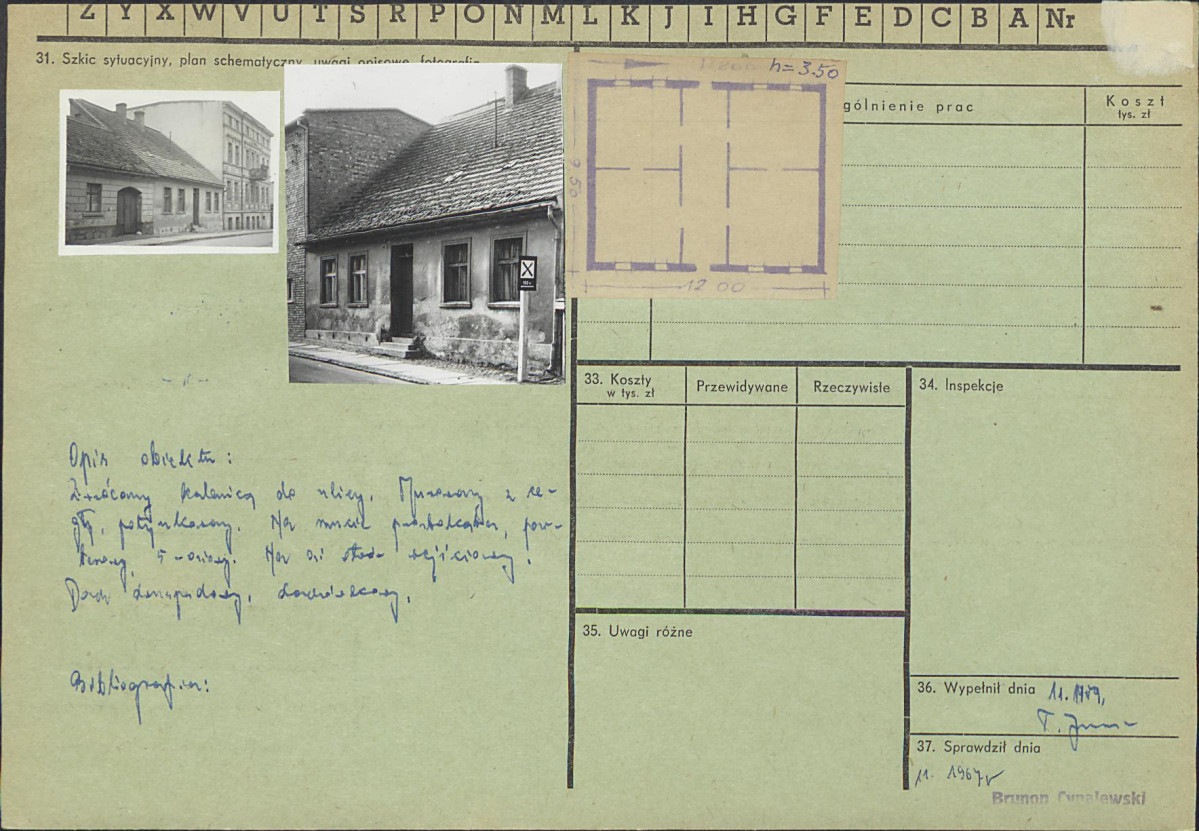 Z Y X W V U T S R P O N M L K J I H G F E D C B A Nr
31. Szkic sytuacyjny, plan schematyczny, uwagi opisowe, fotografie
h=3.50
9 50
12 00
gólnienie prac
Koszt
tys. zł
33. Koszty
w tys. zł
Przewidywane
Rzeczywiste
34. Inspekcje
Opis obiektu:
Zwrócony kalenicą do ulicy. Murowany z ce-
gły, potynkowany. Na rzucie prostokąta, par-
terowy, 5-osiowy. Na osi otwór wejściowy.
Dach dwuspadowy, dachówkowy.
Bibliografia:
35. Uwagi różne
36. Wypełnił dnia
T.
37. Sprawdził dnia
11. 1967
Brunon Cynalewski